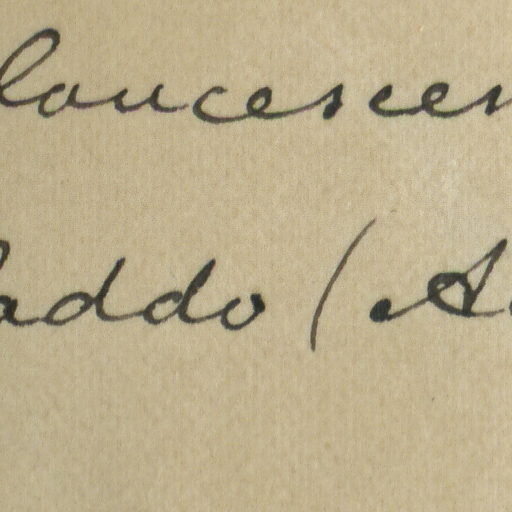 laucescen
addo (A